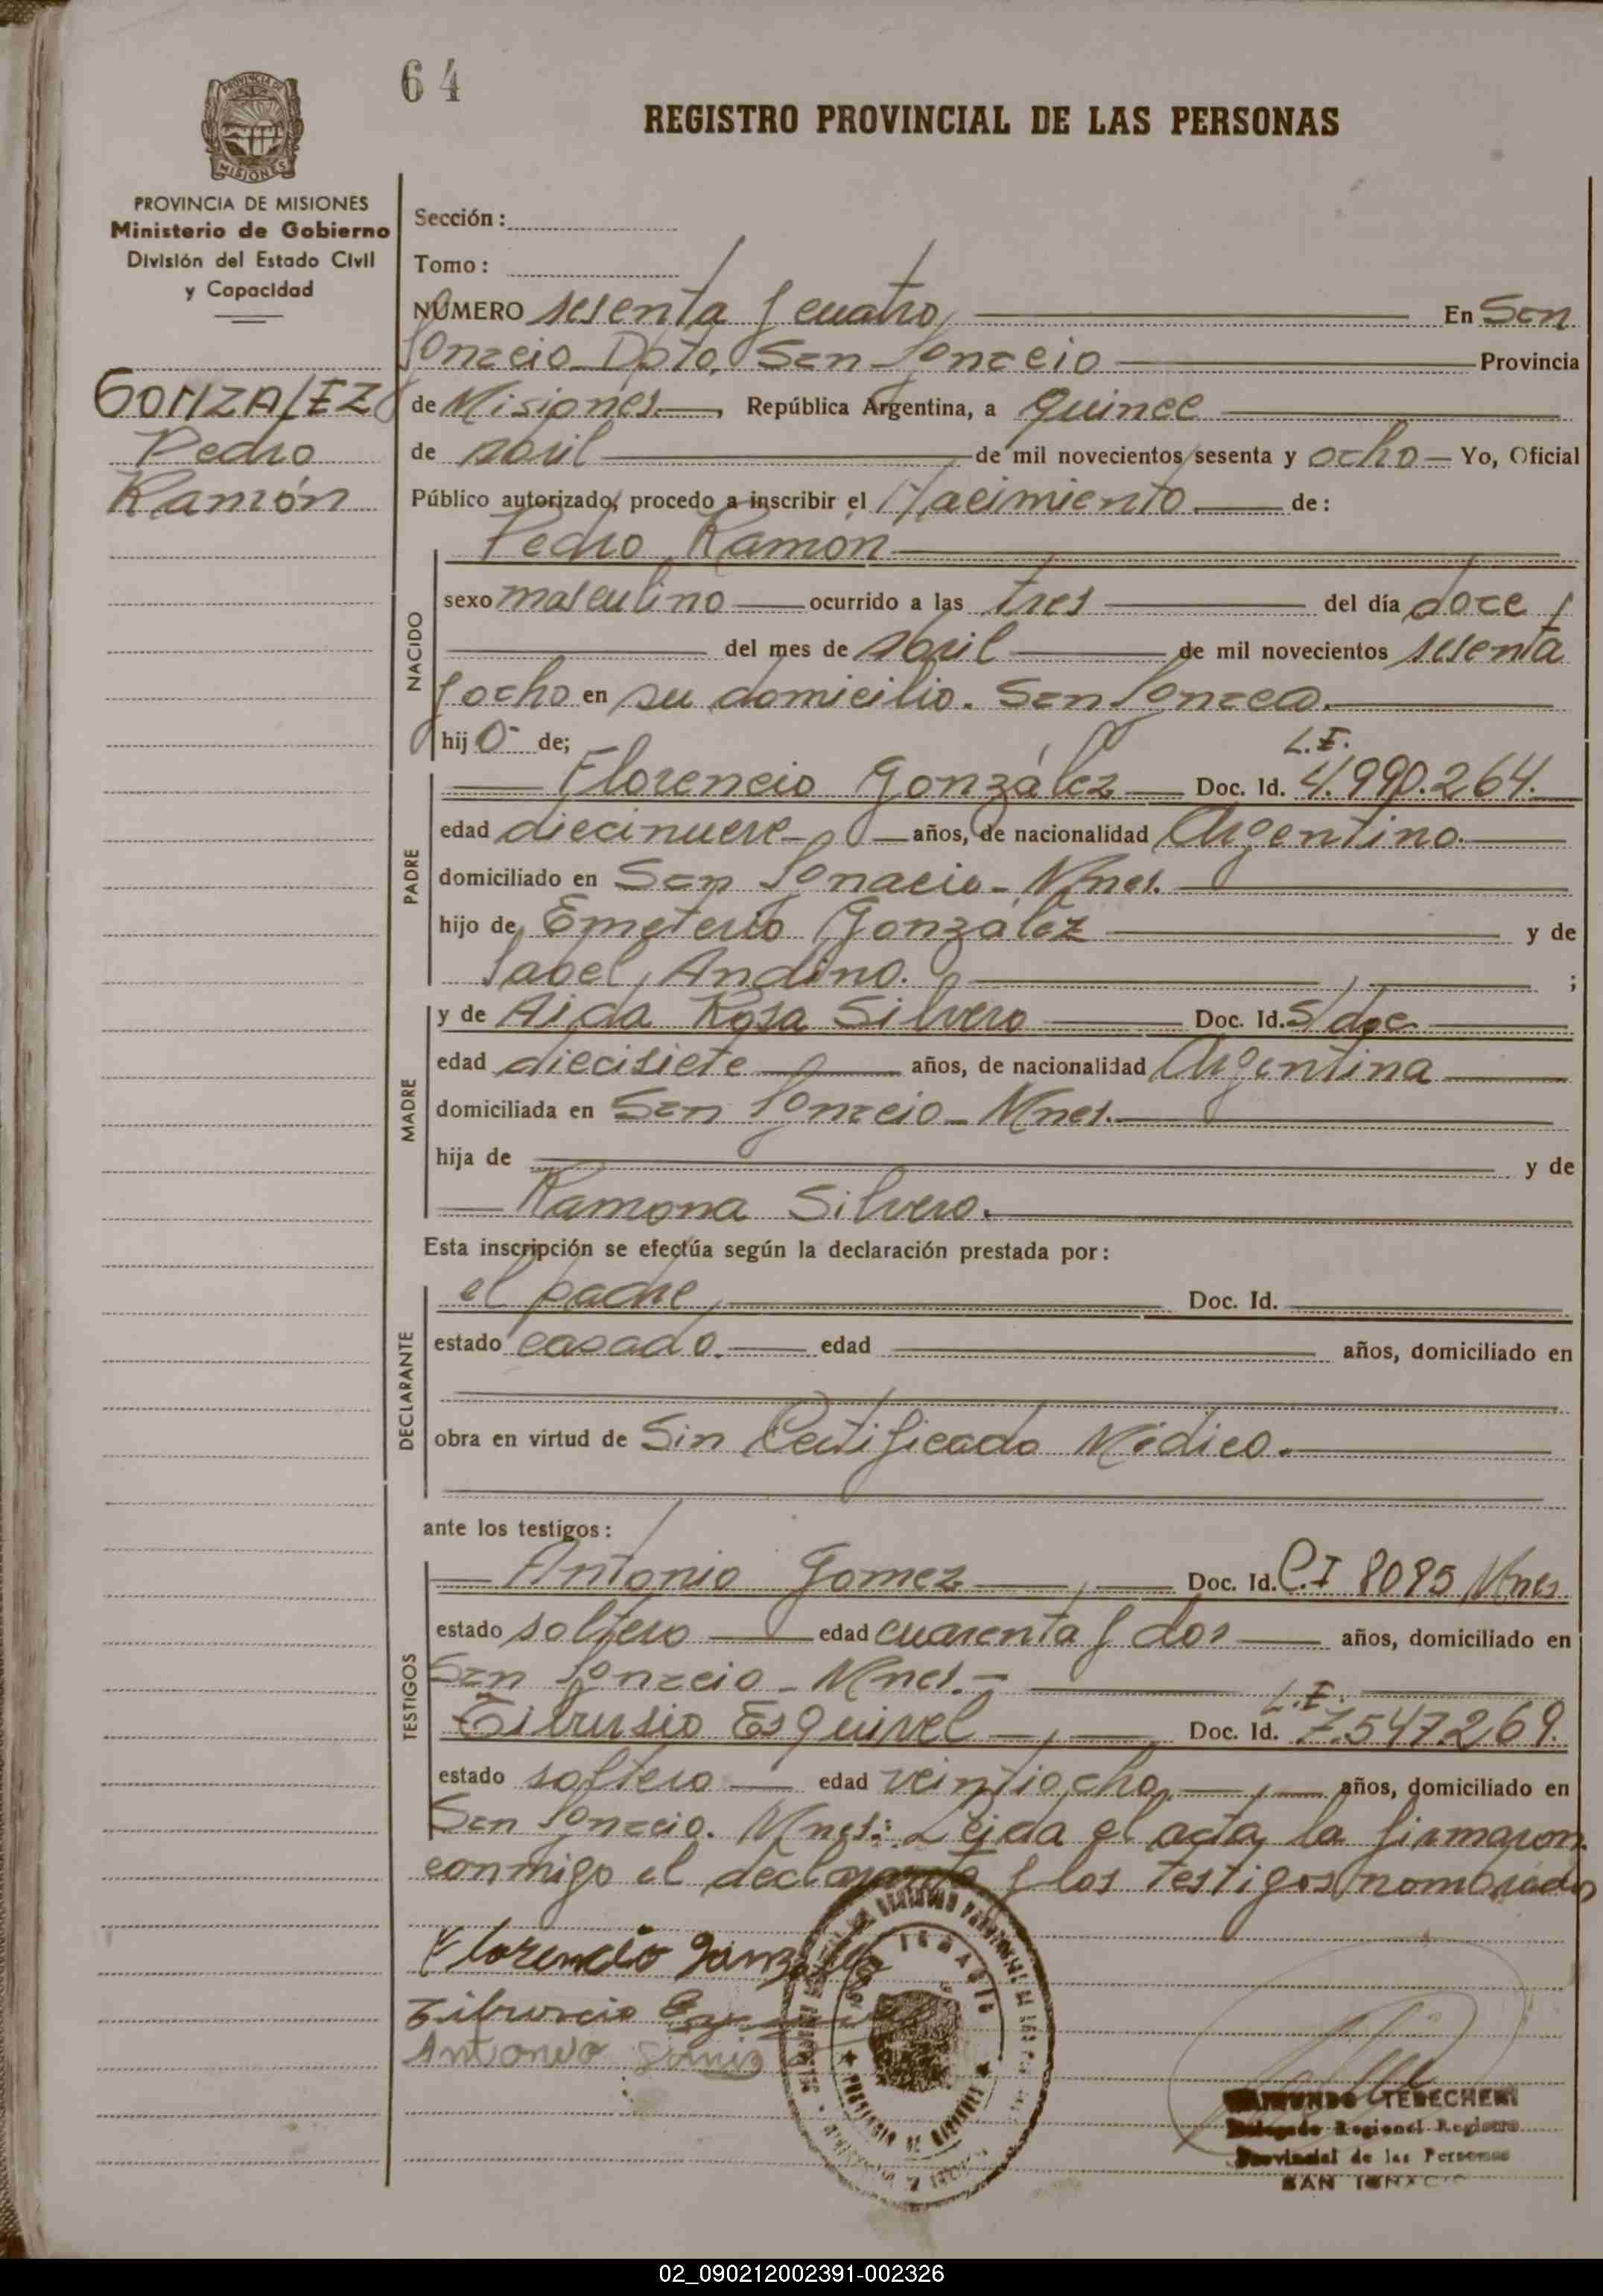 64
REGISTRO PROVINCIAL DE LAS PERSONAS
PROVINCIA DE MISIONES
Ministerio de Gobierno
División del Estado Civil
y Capacidad
GONZALEZ
Pedro
Ramón
Sección:
Tomo:
NÚMERO sesenta y cuatro En San
Ignacio Dpto. San Ignacio Provincia
de Misiones, República Argentina, a quince
de abril de mil novecientos sesenta y ocho Yo, Oficial
Público autorizado, procedo a inscribir el Nacimiento de:
Pedro Ramón
NACIDO
sexo masculino ocurrido a las tres del día doce
del mes de abril de mil novecientos sesenta
y ocho en su domicilio. San Ignacio.
hijo de;
L.E.
PADRE
Florencio González Doc. Id. 4.990.264.
edad diecinueve años, de nacionalidad Argentino.
domiciliado en San Ignacio - Mnes.
hijo de Emeterio González y de
Isabel Andino. ;
MADRE
y de Aida Rosa Silvero Doc. Id. S/doc.
edad diecisiete años, de nacionalidad Argentina
domiciliada en San Ignacio - Mnes.
hija de y de
Ramona Silvero.
Esta inscripción se efectúa según la declaración prestada por:
DECLARANTE
el padre, Doc. Id.
estado casado. edad años, domiciliado en
obra en virtud de Sin Certificado Médico.
ante los testigos:
TESTIGOS
Antonio Gomez, Doc. Id. C.I 8085 Mnes
estado soltero edad cuarenta y dos años, domiciliado en
San Ignacio - Mnes. -
L.E.
Tibursio Esquivel, Doc. Id. 7.547269.
estado soltero edad veintiocho, años, domiciliado en
San Ignacio. Mnes: Leida el acta, la firmaron
conmigo el declarante y los testigos nombrados
Florencio Gonzalez
Tiburcio Esquivel
Antonio
IGNACIO
PROVINCIA DE MISIONES
RAIMUNDO TERECHEN
Delegado Regional Registro
Provincial de las Personas
SAN IGNACIO
02_090212002391-002326